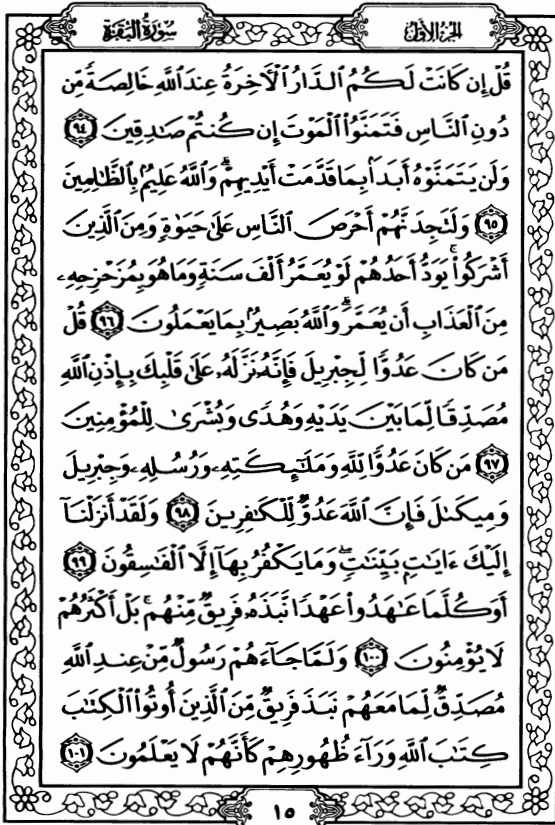 الجزء الأول
سورة البقرة
قُلْ إِن كَانَتْ لَكُمُ ٱلدَّارُ ٱلْآخِرَةُ عِندَ ٱللَّهِ خَالِصَةً مِّن
دُونِ ٱلنَّاسِ فَتَمَنَّوُا۟ ٱلْمَوْتَ إِن كُنتُمْ صَٰدِقِينَ ٩٤
وَلَن يَتَمَنَّوْهُ أَبَدًۢا بِمَا قَدَّمَتْ أَيْدِيهِمْ ۗ وَٱللَّهُ عَلِيمٌۢ بِٱلظَّٰلِمِينَ
٩٥ وَلَتَجِدَنَّهُمْ أَحْرَصَ ٱلنَّاسِ عَلَىٰ حَيَوٰةٍ وَمِنَ ٱلَّذِينَ
أَشْرَكُوا۟ ۚ يَوَدُّ أَحَدُهُمْ لَوْ يُعَمَّرُ أَلْفَ سَنَةٍ وَمَا هُوَ بِمُزَحْزِحِهِۦ
مِنَ ٱلْعَذَابِ أَن يُعَمَّرَ ۗ وَٱللَّهُ بَصِيرٌۢ بِمَا يَعْمَلُونَ ٩٦ قُلْ
مَن كَانَ عَدُوًّا لِّجِبْرِيلَ فَإِنَّهُۥ نَزَّلَهُۥ عَلَىٰ قَلْبِكَ بِإِذْنِ ٱللَّهِ
مُصَدِّقًا لِّمَا بَيْنَ يَدَيْهِ وَهُدًى وَبُشْرَىٰ لِلْمُؤْمِنِينَ
٩٧ مَن كَانَ عَدُوًّا لِّلَّهِ وَمَلَٰٓئِكَتِهِۦ وَرُسُلِهِۦ وَجِبْرِيلَ
وَمِيكَىٰلَ فَإِنَّ ٱللَّهَ عَدُوٌّ لِّلْكَٰفِرِينَ ٩٨ وَلَقَدْ أَنزَلْنَآ
إِلَيْكَ ءَايَٰتٍۭ بَيِّنَٰتٍ ۖ وَمَا يَكْفُرُ بِهَآ إِلَّا ٱلْفَٰسِقُونَ ٩٩
أَوَكُلَّمَا عَٰهَدُوا۟ عَهْدًا نَّبَذَهُۥ فَرِيقٌ مِّنْهُم ۚ بَلْ أَكْثَرُهُمْ
لَا يُؤْمِنُونَ ١٠٠ وَلَمَّا جَآءَهُمْ رَسُولٌ مِّنْ عِندِ ٱللَّهِ
مُصَدِّقٌ لِّمَا مَعَهُمْ نَبَذَ فَرِيقٌ مِّنَ ٱلَّذِينَ أُوتُوا۟ ٱلْكِتَٰبَ
كِتَٰبَ ٱللَّهِ وَرَآءَ ظُهُورِهِمْ كَأَنَّهُمْ لَا يَعْلَمُونَ ١٠١
١٥